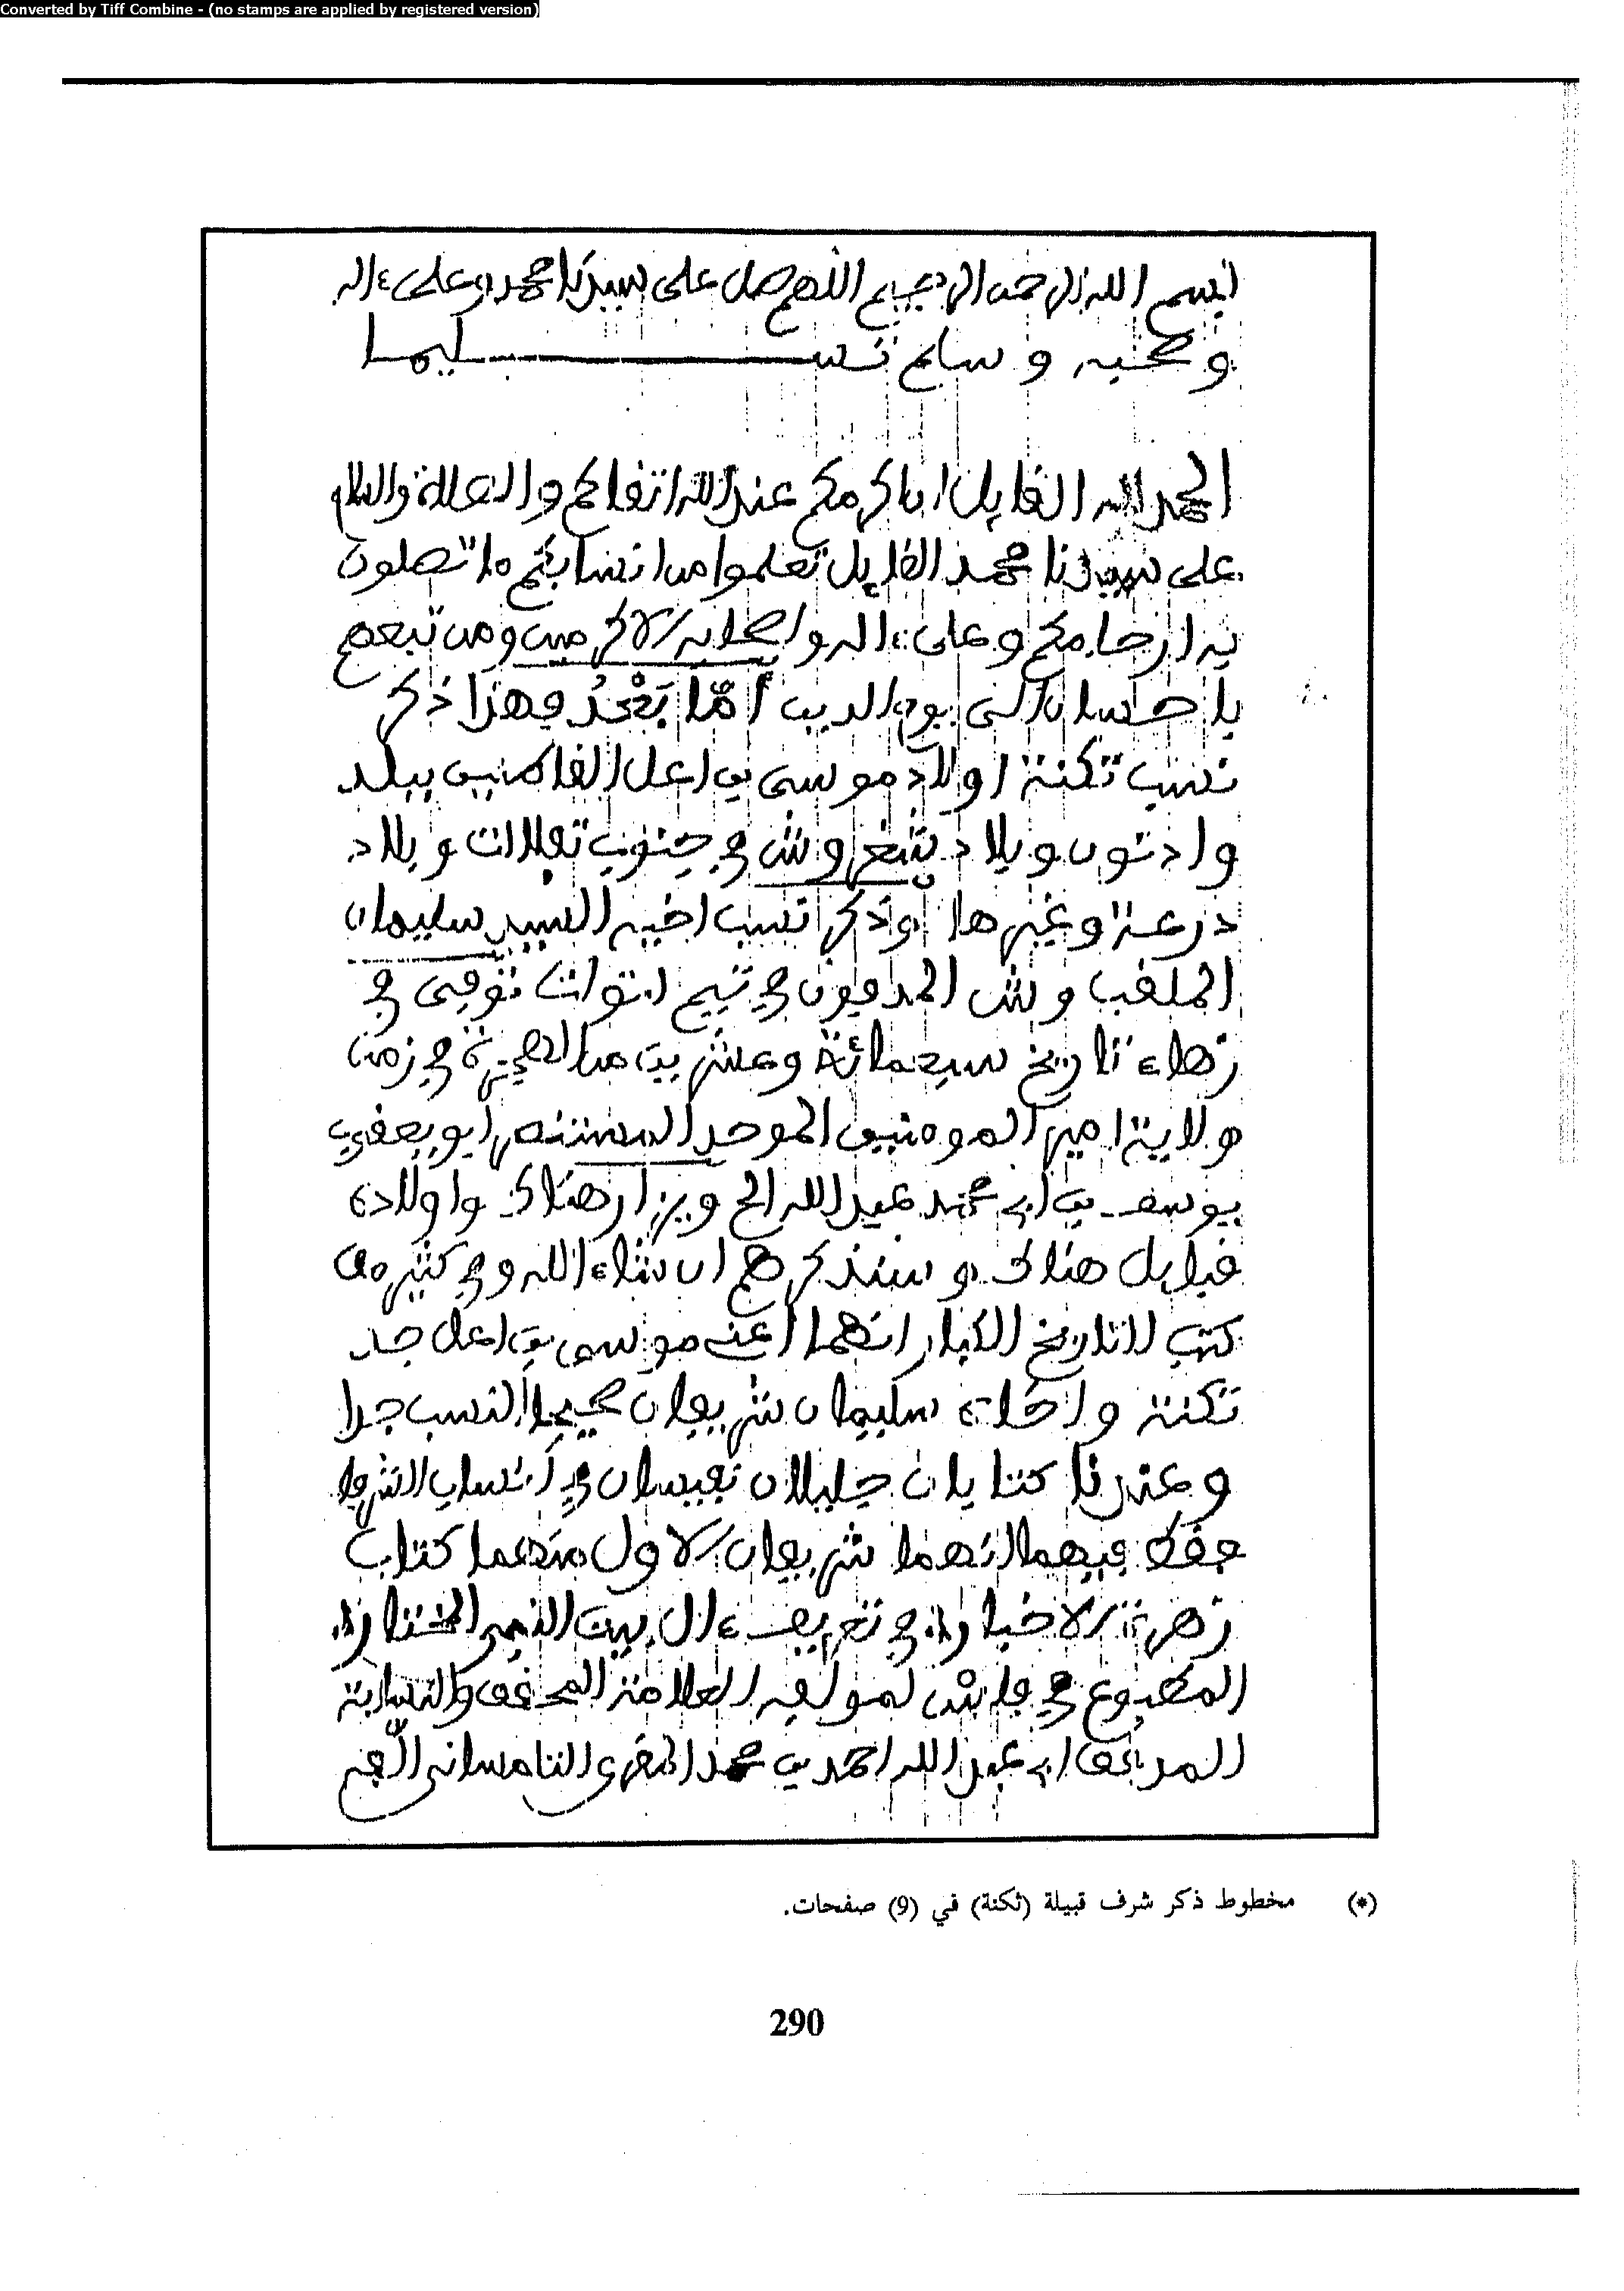 Converted by Tiff Combine - (no stamps are applied by registered version)
بسم الله الرحمن الرحيم اللهم صل على سيدنا محمد وعلى ءاله
وصحبه وسلم تسليما
الحمد لله القايل ان اكرمكم عند الله اتقاكم والصلاة والسلام
على سيدنا محمد القايل تعلموا من انسابكم ما تصلون
به ارحامكم وعلى ءاله واصحابه الاكرمين ومن تبعهم
باحسان الى يوم الدين أمّا بَعْدُ فهذا ذكر
نسب تكنة اولاد موسى بن اعل القاطنين ببلد
وادنون وبلاد في جنوب تفلالات وبلاد
درعة وغيرها وذكر نسب اخيه السيد سليمان
الملقب وش المدفون في تيم توات توفي في
زهاء تاريخ سبعمائة وعشرين من الهجرة في زمن
ولاية امير المومنين الموحد المستنصر ابو يعقوب
يوسف بن ابي محمد عبد الله الخ ويزار هناك واولاده
قبايل هناك وسنذكرهم ان شاء الله وفي كثير من
كتب التاريخ الكبار انهما اعني موسى بن اعل جد
تكنة واخاه سليمان شريفان صحيحا النسب جدا
وعندنا كتابان جليلان نفيسان في انساب الشرفا
فيهما انهما شريفان الاول منهما كتاب
زهرة الاخبار في تعريف ءال بيت النبي المختار
المطبوع في فاس لمولفه العلامة المحقق والنسابة
المدقق ابي عبد الله احمد بن محمد المقري التلمساني
(*) مخطوط ذكر شرف قبيلة (تكنة) في (9) صفحات.
290